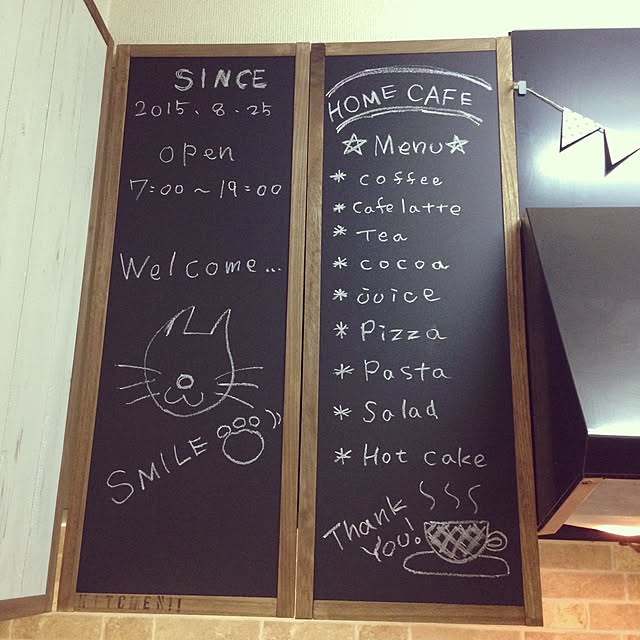 SINCE
2015.8.25
open
7:00~19:00
Welcome...
SMILE
KITCHEN!!
HOME CAFE
☆Menu☆
* coffee
* Cafe latte
* Tea
* cocoa
* juice
* Pizza
* Pasta
* Salad
* Hot cake
Thank
You!